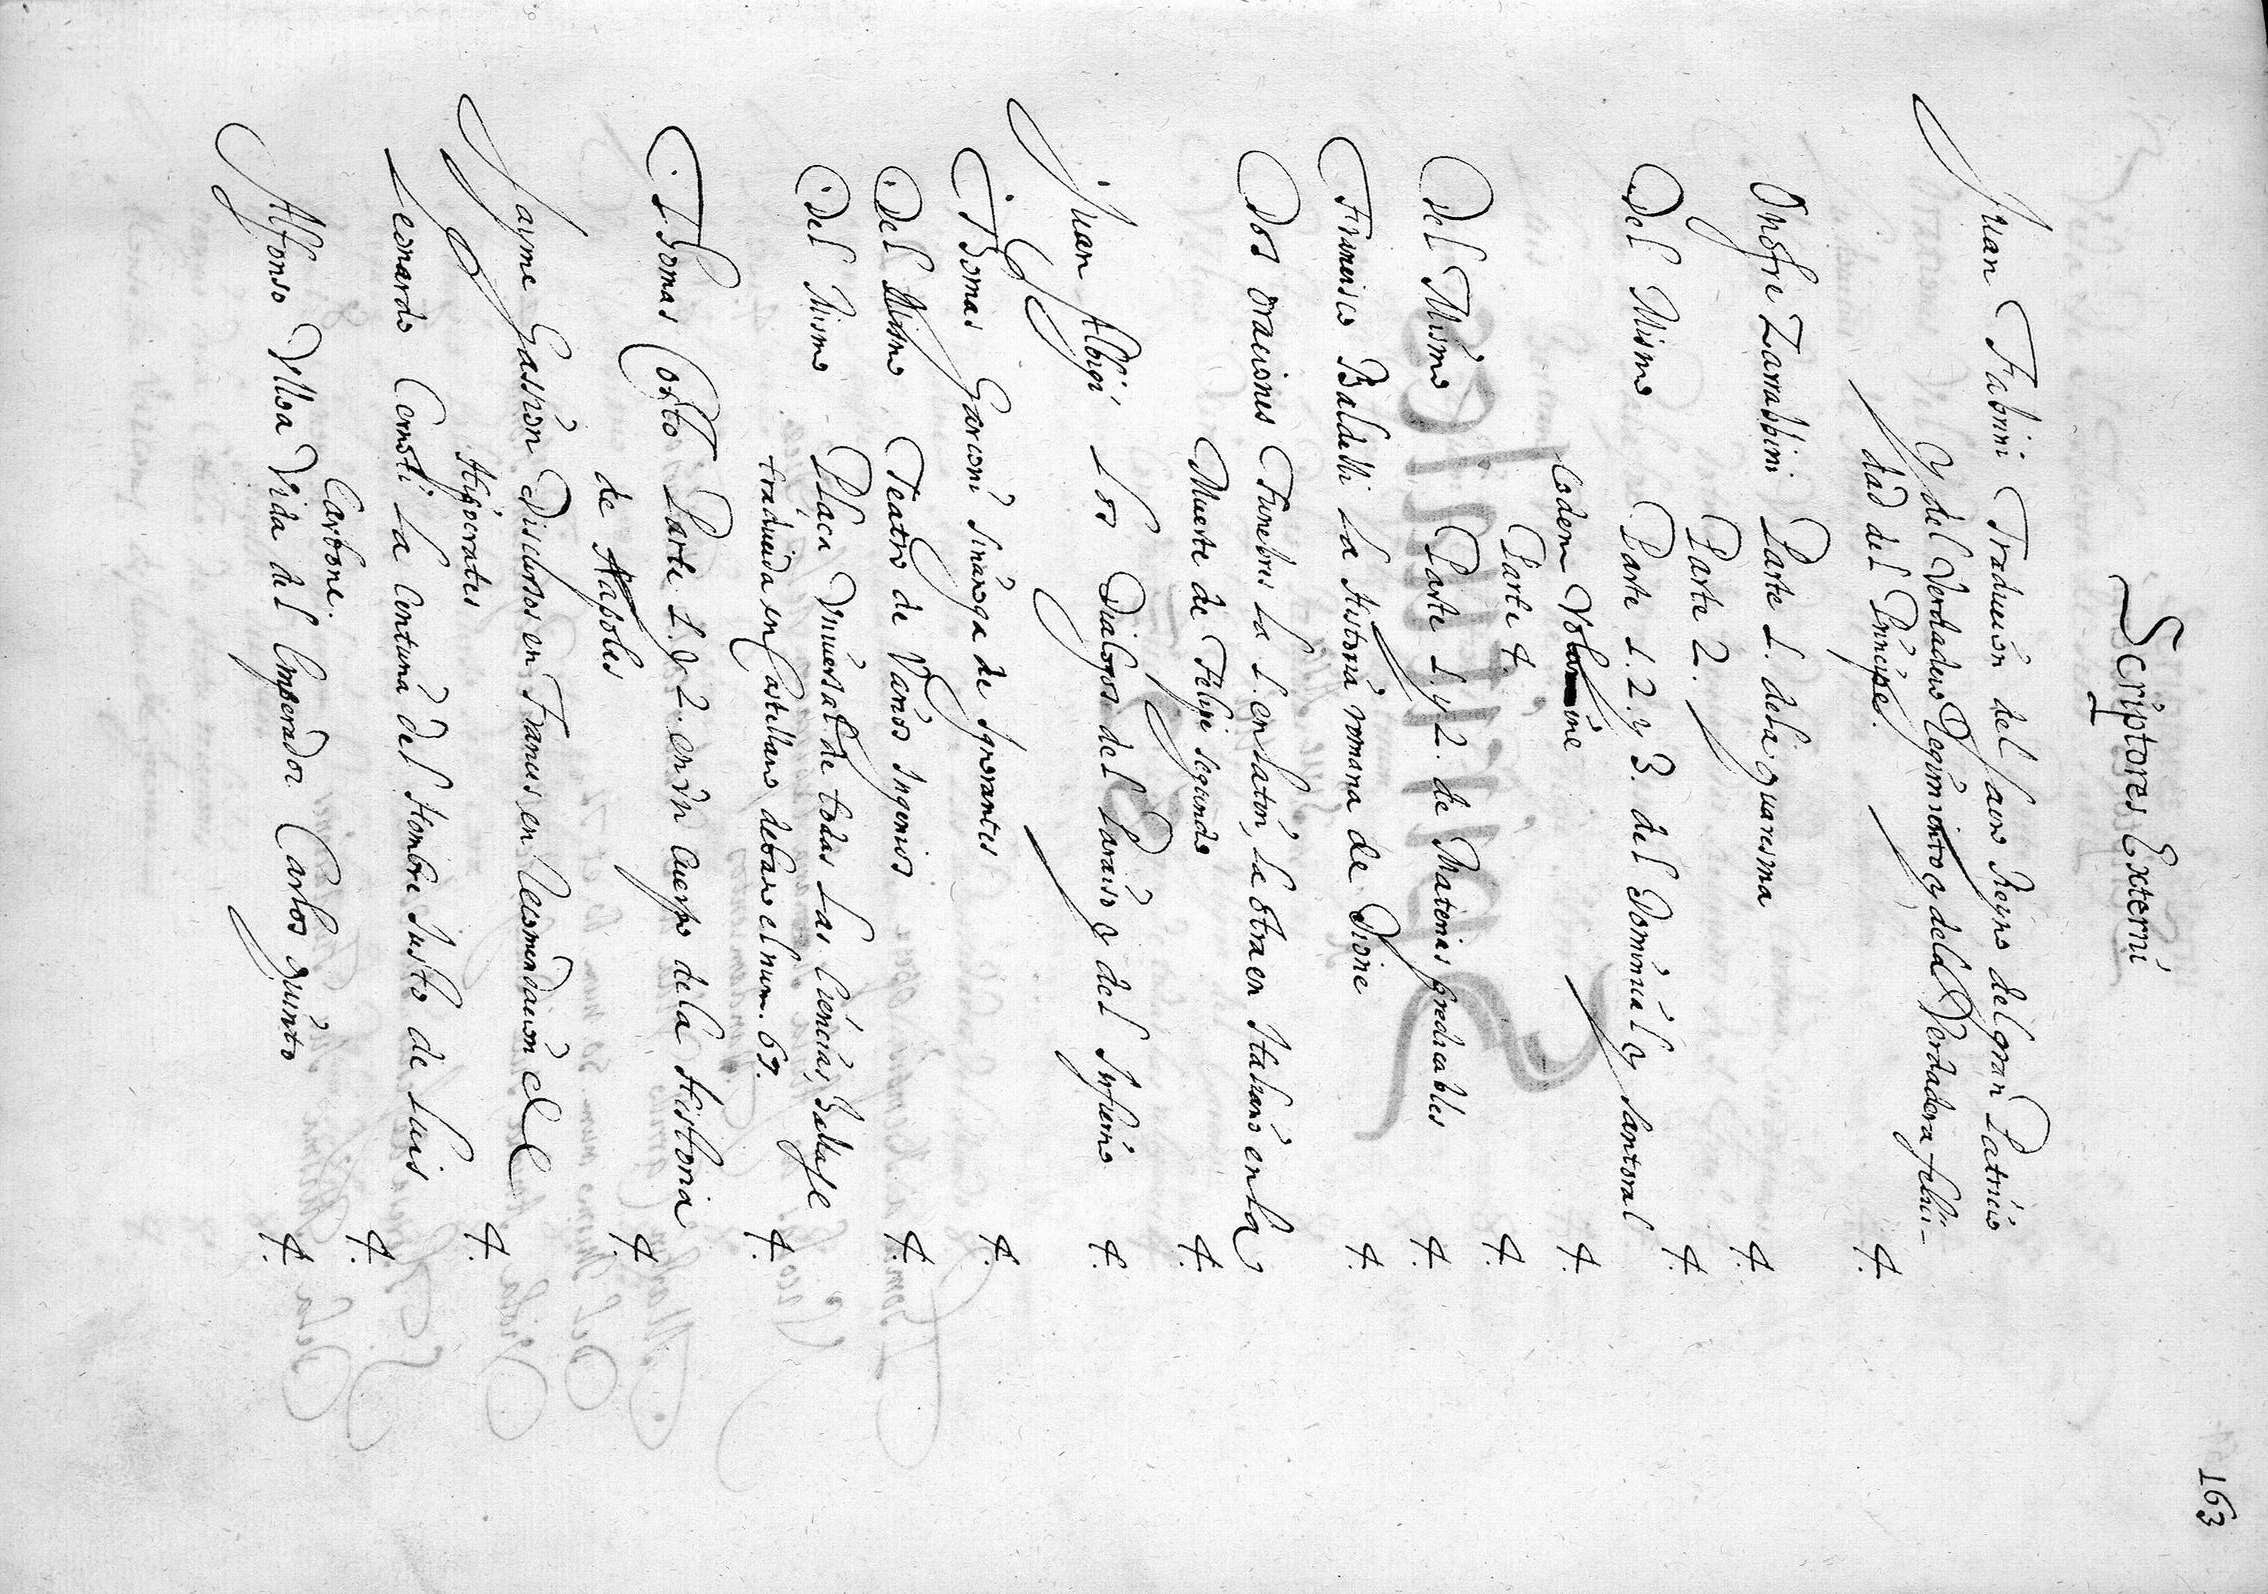 163
Scriptores Externi
Juan Fabrini Traducion del sacro Reyno del gran Patricio
y del Verdadero Regimiento y dela Verdadera felici-
dad del Principe. 4.
Onofre Zarrabini Parte 1. dela quaresma 4.
Parte 2. 4.
Del Mismo Parte 1. 2. y 3. del Dominical y santoral
Eodem Volumine 4.
Parte 4. 4.
Del Mismo Parte 1. y 2. de Materias predicables 4.
Francisco Baldelli La Historia romana de Dione 4.
Dos oraciones Funebres La 1. en Latin, La otra en Italiano en la
Muerte de Felipe segundo 4.
Juan Albigi Los Dialogos del Paraiso y del Infierno 4.
Thomas Garconi Sinaoga de Ignorantes 4.
Del Mismo Teatro de Varios Ingenios 4.
Del Mismo Plaça Universal de todas Las Ciencias, Hallase
traducida en Castellano debaxo el num. 69. 4.
Thomas Costo Parte 1. y 2. en un cuerpo dela Historia
de Napoles 4.
Jayme Gassion Discursos en Frances en recomendacion de
Hipocrates 4.
Leonardo Cernoti La Centuria del Hombre Justo de Luis
Carbone. 4.
Alfonso Ulloa Vida del Emperador Carlos quinto 4.